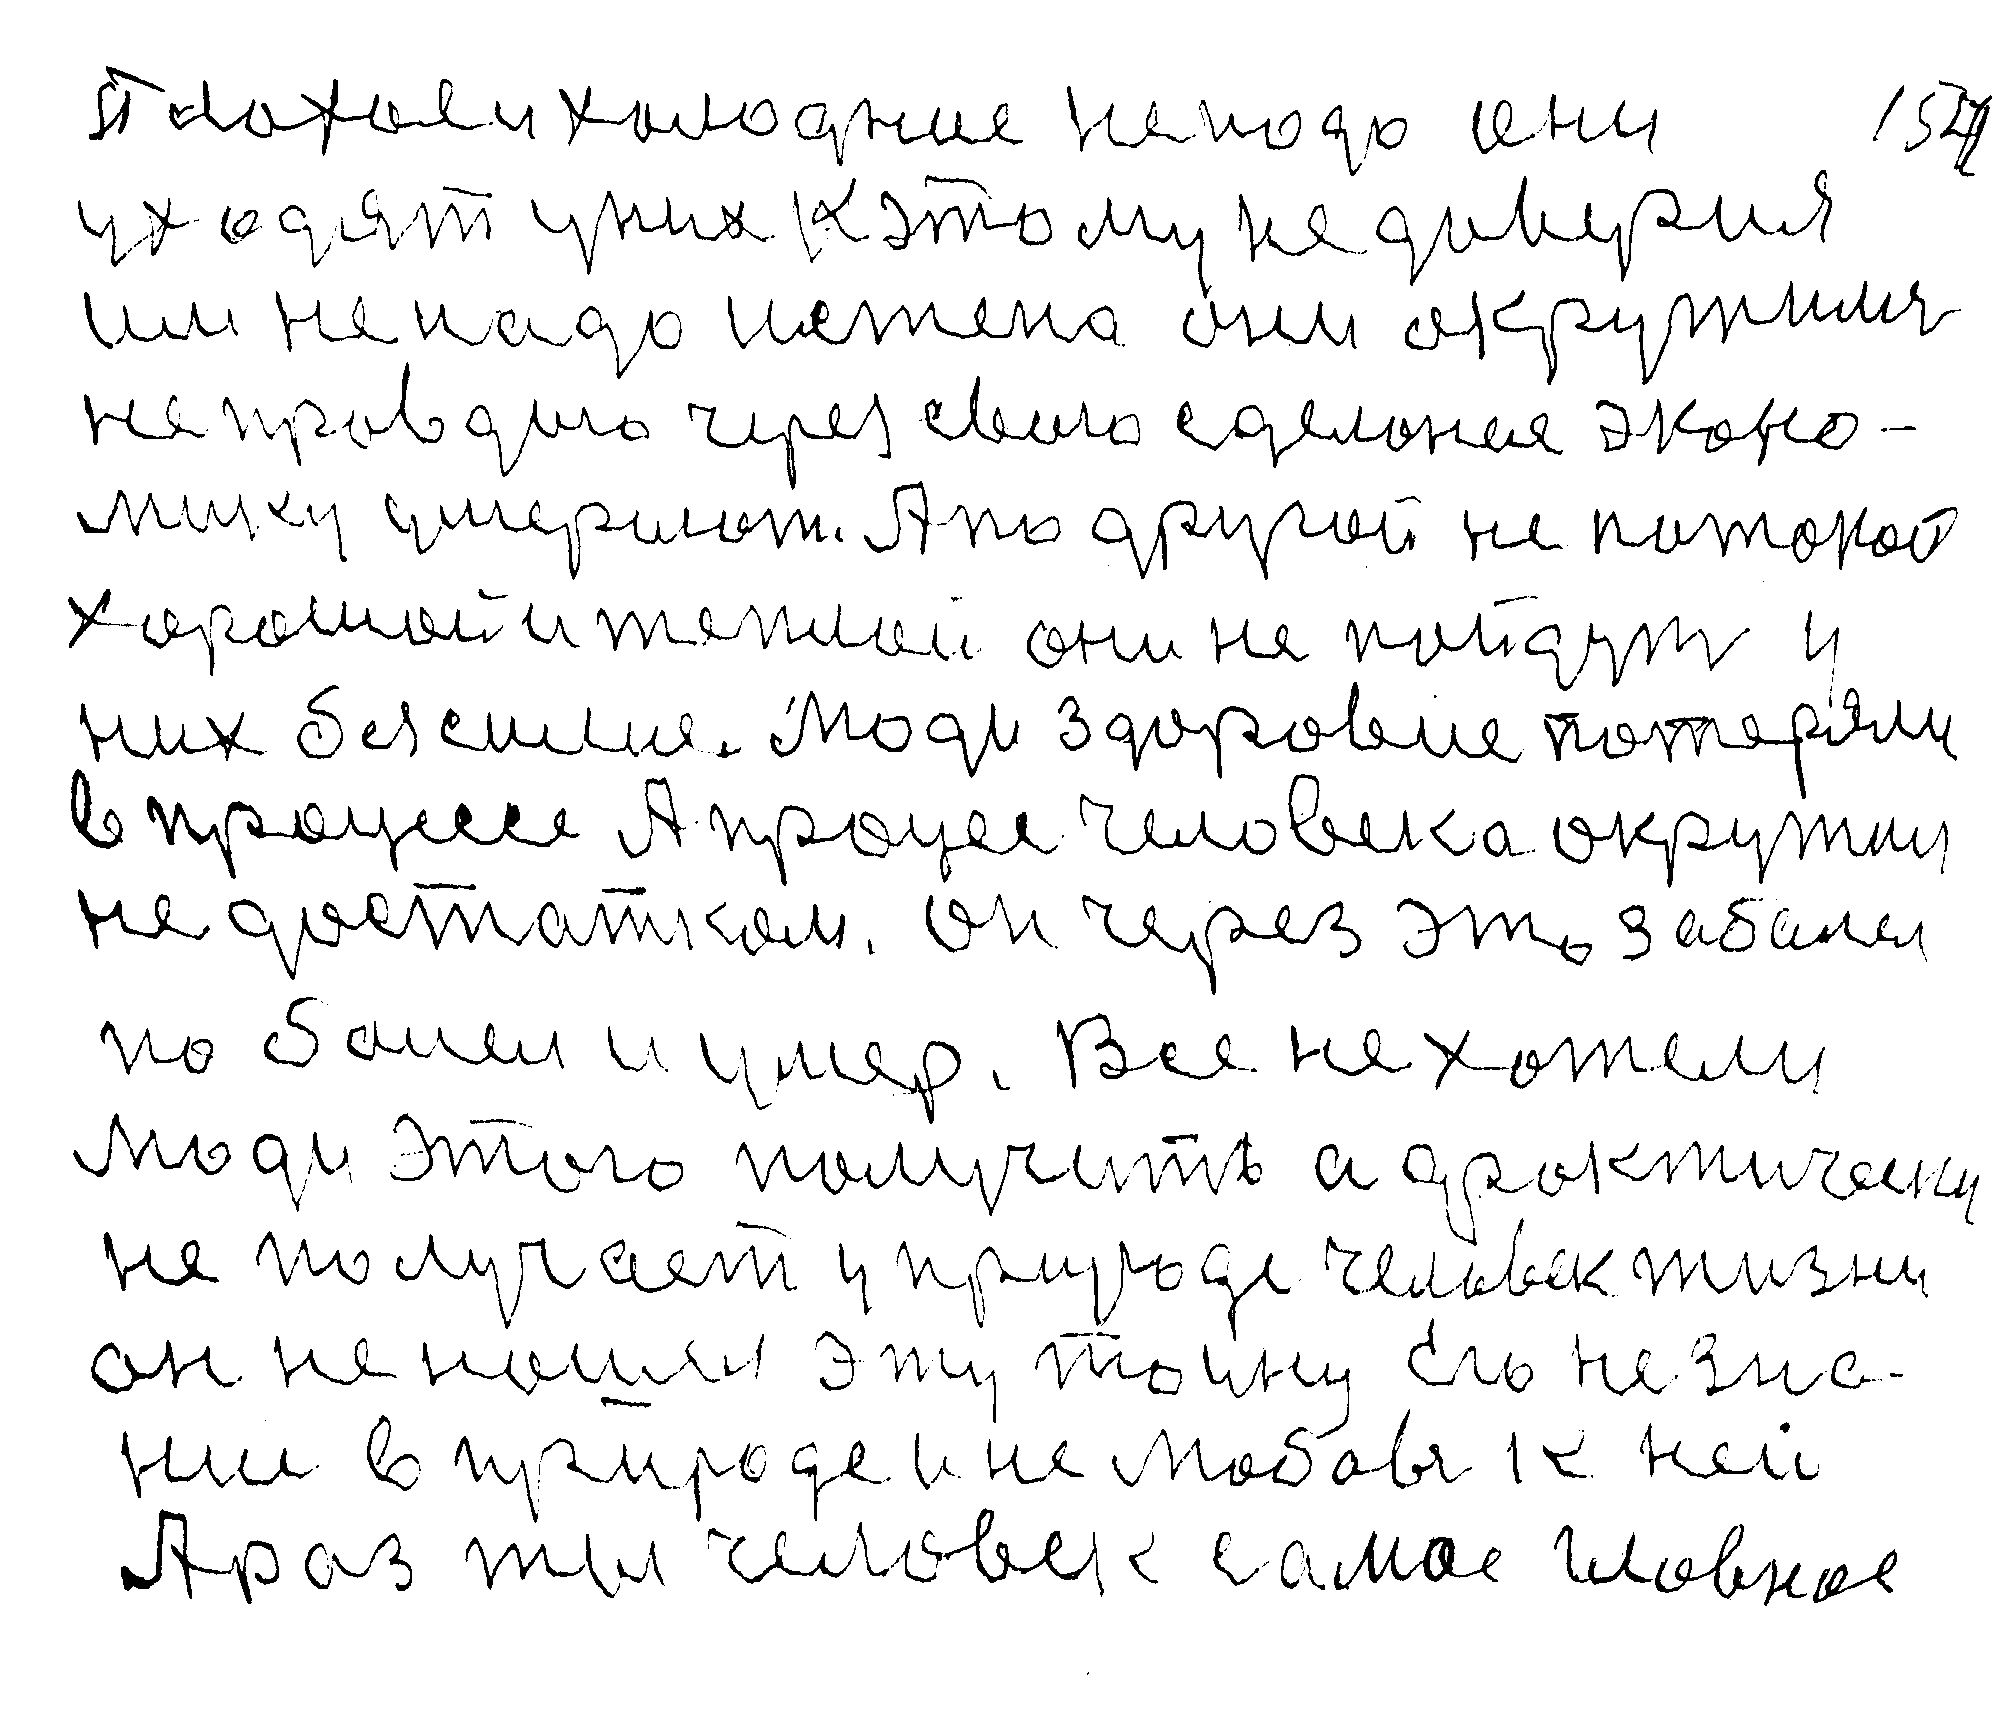 Плохое и холодние ненодо они
уходят у них к этому не доверия
им не надо истена они окружимя
не провдою через свою сделоное эконо-
мику умерают. А по другой не потокой
хорошой и теплой они не пойдут у
них бессилие. Люди здоровие потеряли
в процессе А процес человека окружил
не достатком. он через это забалел
по болел и умер. Все не хотели
люди этого получить а проктически
не получает у природе человек жизни
он не нашел эту тоину его не зна-
ние в природе и не любовь к ней
А раз ты человек самое гловное